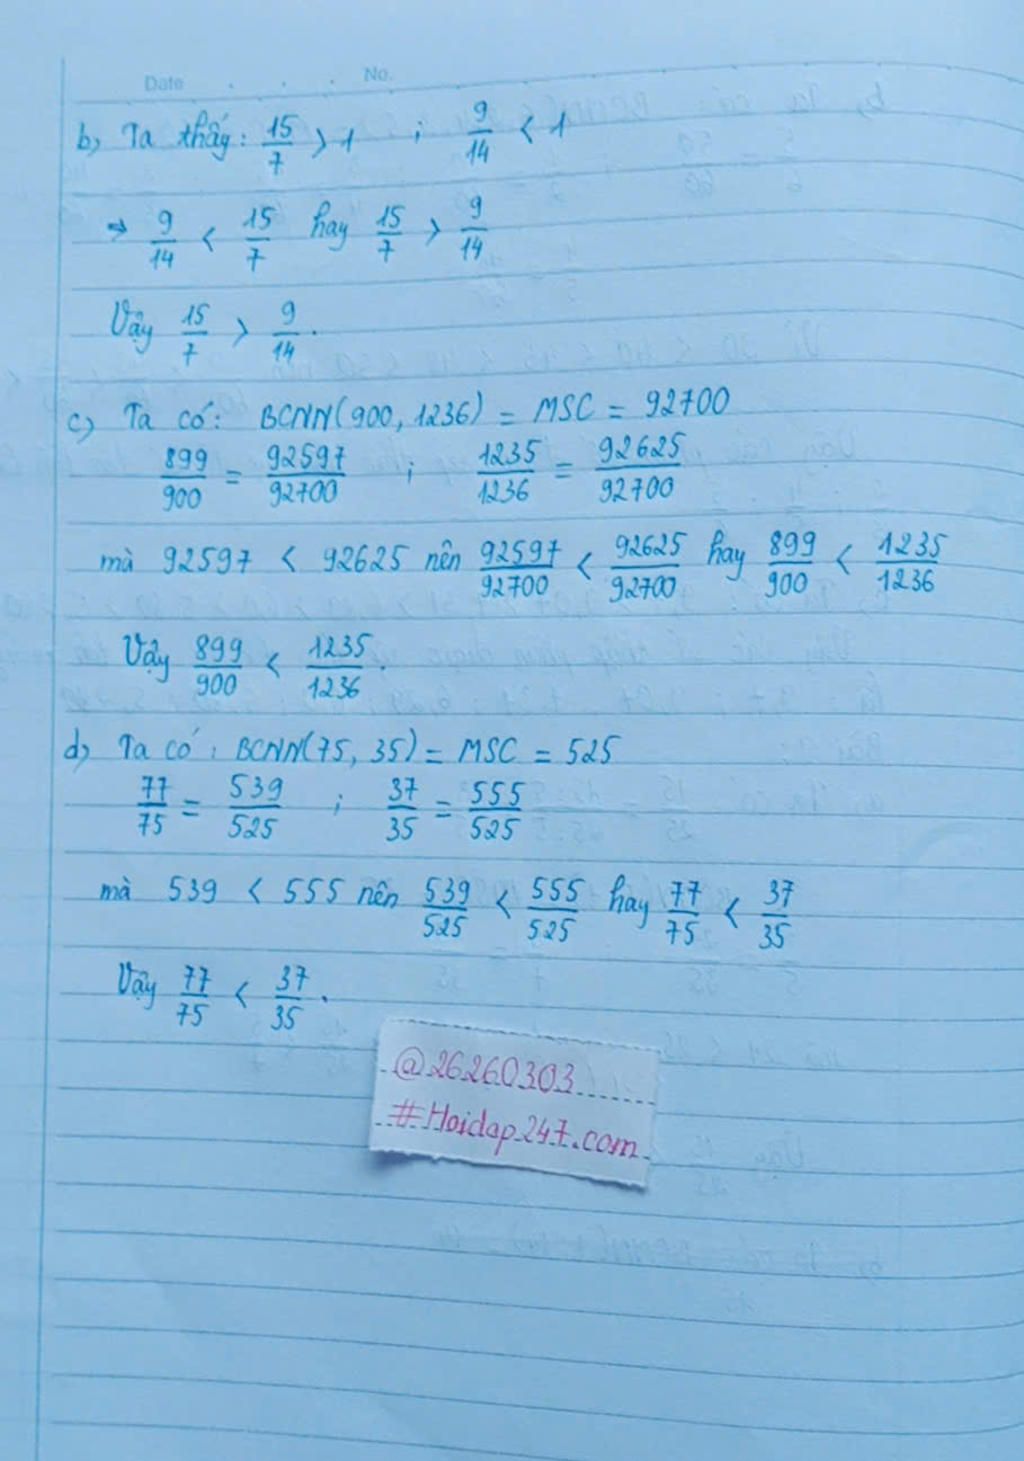 Date . . . No.
b, Ta thấy: 15/7 > 1 ; 9/14 < 1
→ 9/14 < 15/7 hay 15/7 > 9/14
Vậy 15/7 > 9/14.
c, Ta có: BCNN(900, 1236) = MSC = 92700
899/900 = 92597/92700 ; 1235/1236 = 92625/92700
mà 92597 < 92625 nên 92597/92700 < 92625/92700 hay 899/900 < 1235/1236
Vậy 899/900 < 1235/1236.
d, Ta có: BCNN(75, 35) = MSC = 525
77/75 = 539/525 ; 37/35 = 555/525
mà 539 < 555 nên 539/525 < 555/525 hay 77/75 < 37/35
Vậy 77/75 < 37/35.
@26260303
#Hoidap247.com